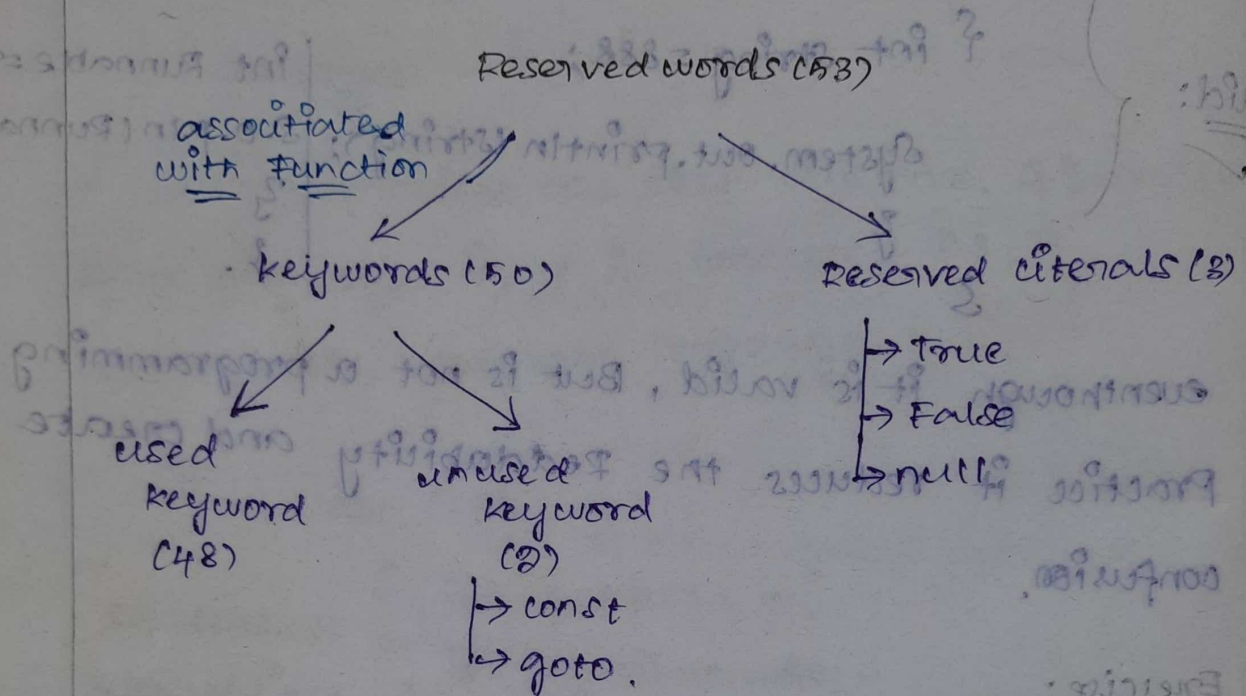 Reserved words (53)
associtiated
with Function
keywords (50)
Reserved literals (3)
→ True
→ False
→ null
used
keyword
(48)
unused
keyword
(2)
→ const
→ goto.